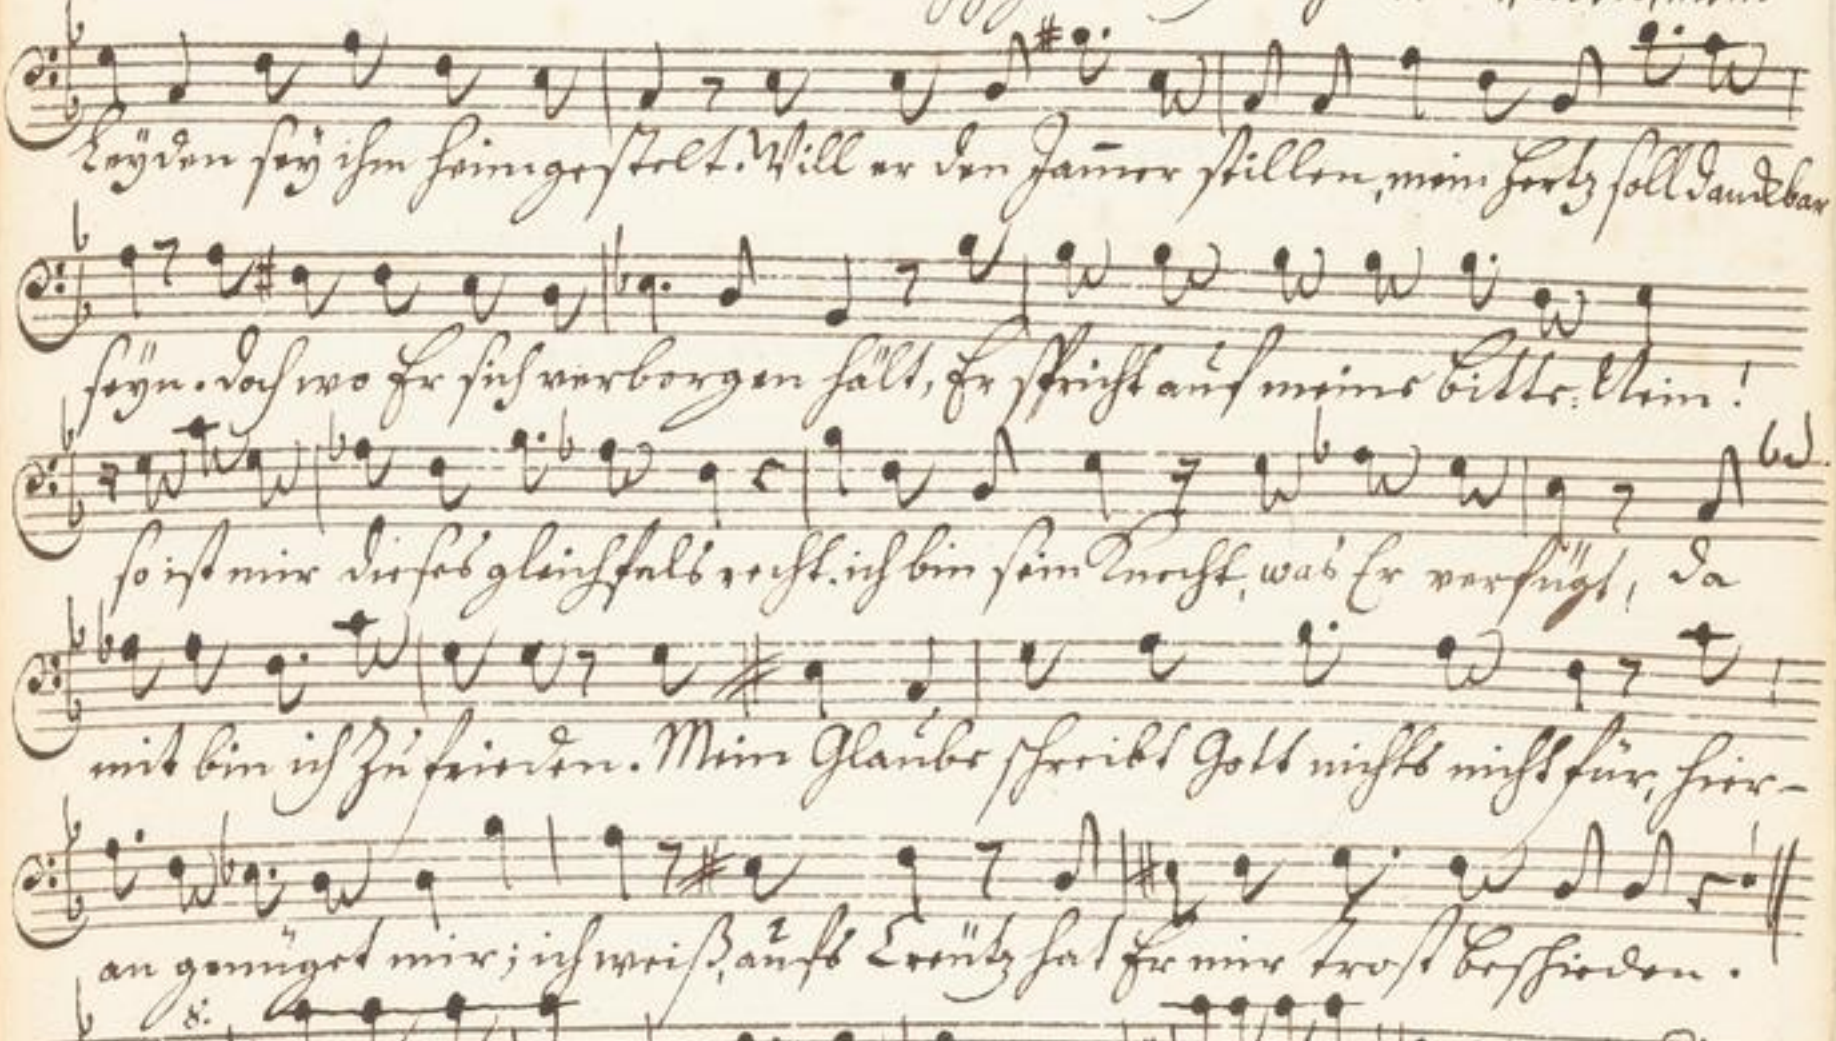 Leÿden seÿ ihm heimgestelt. Will er den Jam̅er stillen, mein Hertz soll danckbar
seÿn. doch wo Er sich verborgen hält, Er spricht auf meine Bitte: Nein!
so ist mir dieses gleichfals recht. ich bin sein Knecht, was Er verfügt, da
mit bin ich zu frieden. Mein Glaube schreibt Gott nichts nicht für, hier-
an genüget mir; ich weiß, aufs Creütz hat Er mir trost beschieden.